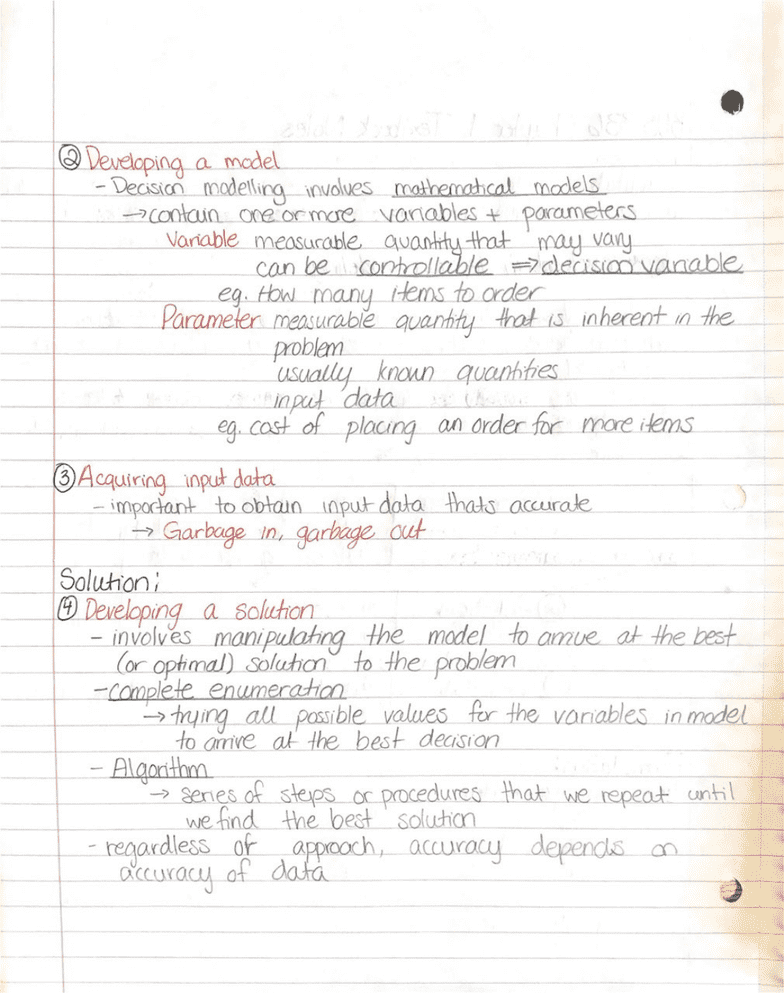 ② Developing a model
- Decision modelling involves mathematical models
→ contain one or more variables + parameters
Variable measurable quantity that may vary
can be controllable ⇒ decision variable
eg. How many items to order
Parameter measurable quantity that is inherent in the
problem
usually known quantities
input data
eg. cost of placing an order for more items
③ Acquiring input data
- important to obtain input data thats accurate
→ Garbage in, garbage out
Solution;
④ Developing a solution
- involves manipulating the model to arrive at the best
(or optimal) solution to the problem
- complete enumeration
→ trying all possible values for the variables in model
to arrive at the best decision
- Algorithm
→ series of steps or procedures that we repeat until
we find the best solution
- regardless of approach, accuracy depends on
accuracy of data